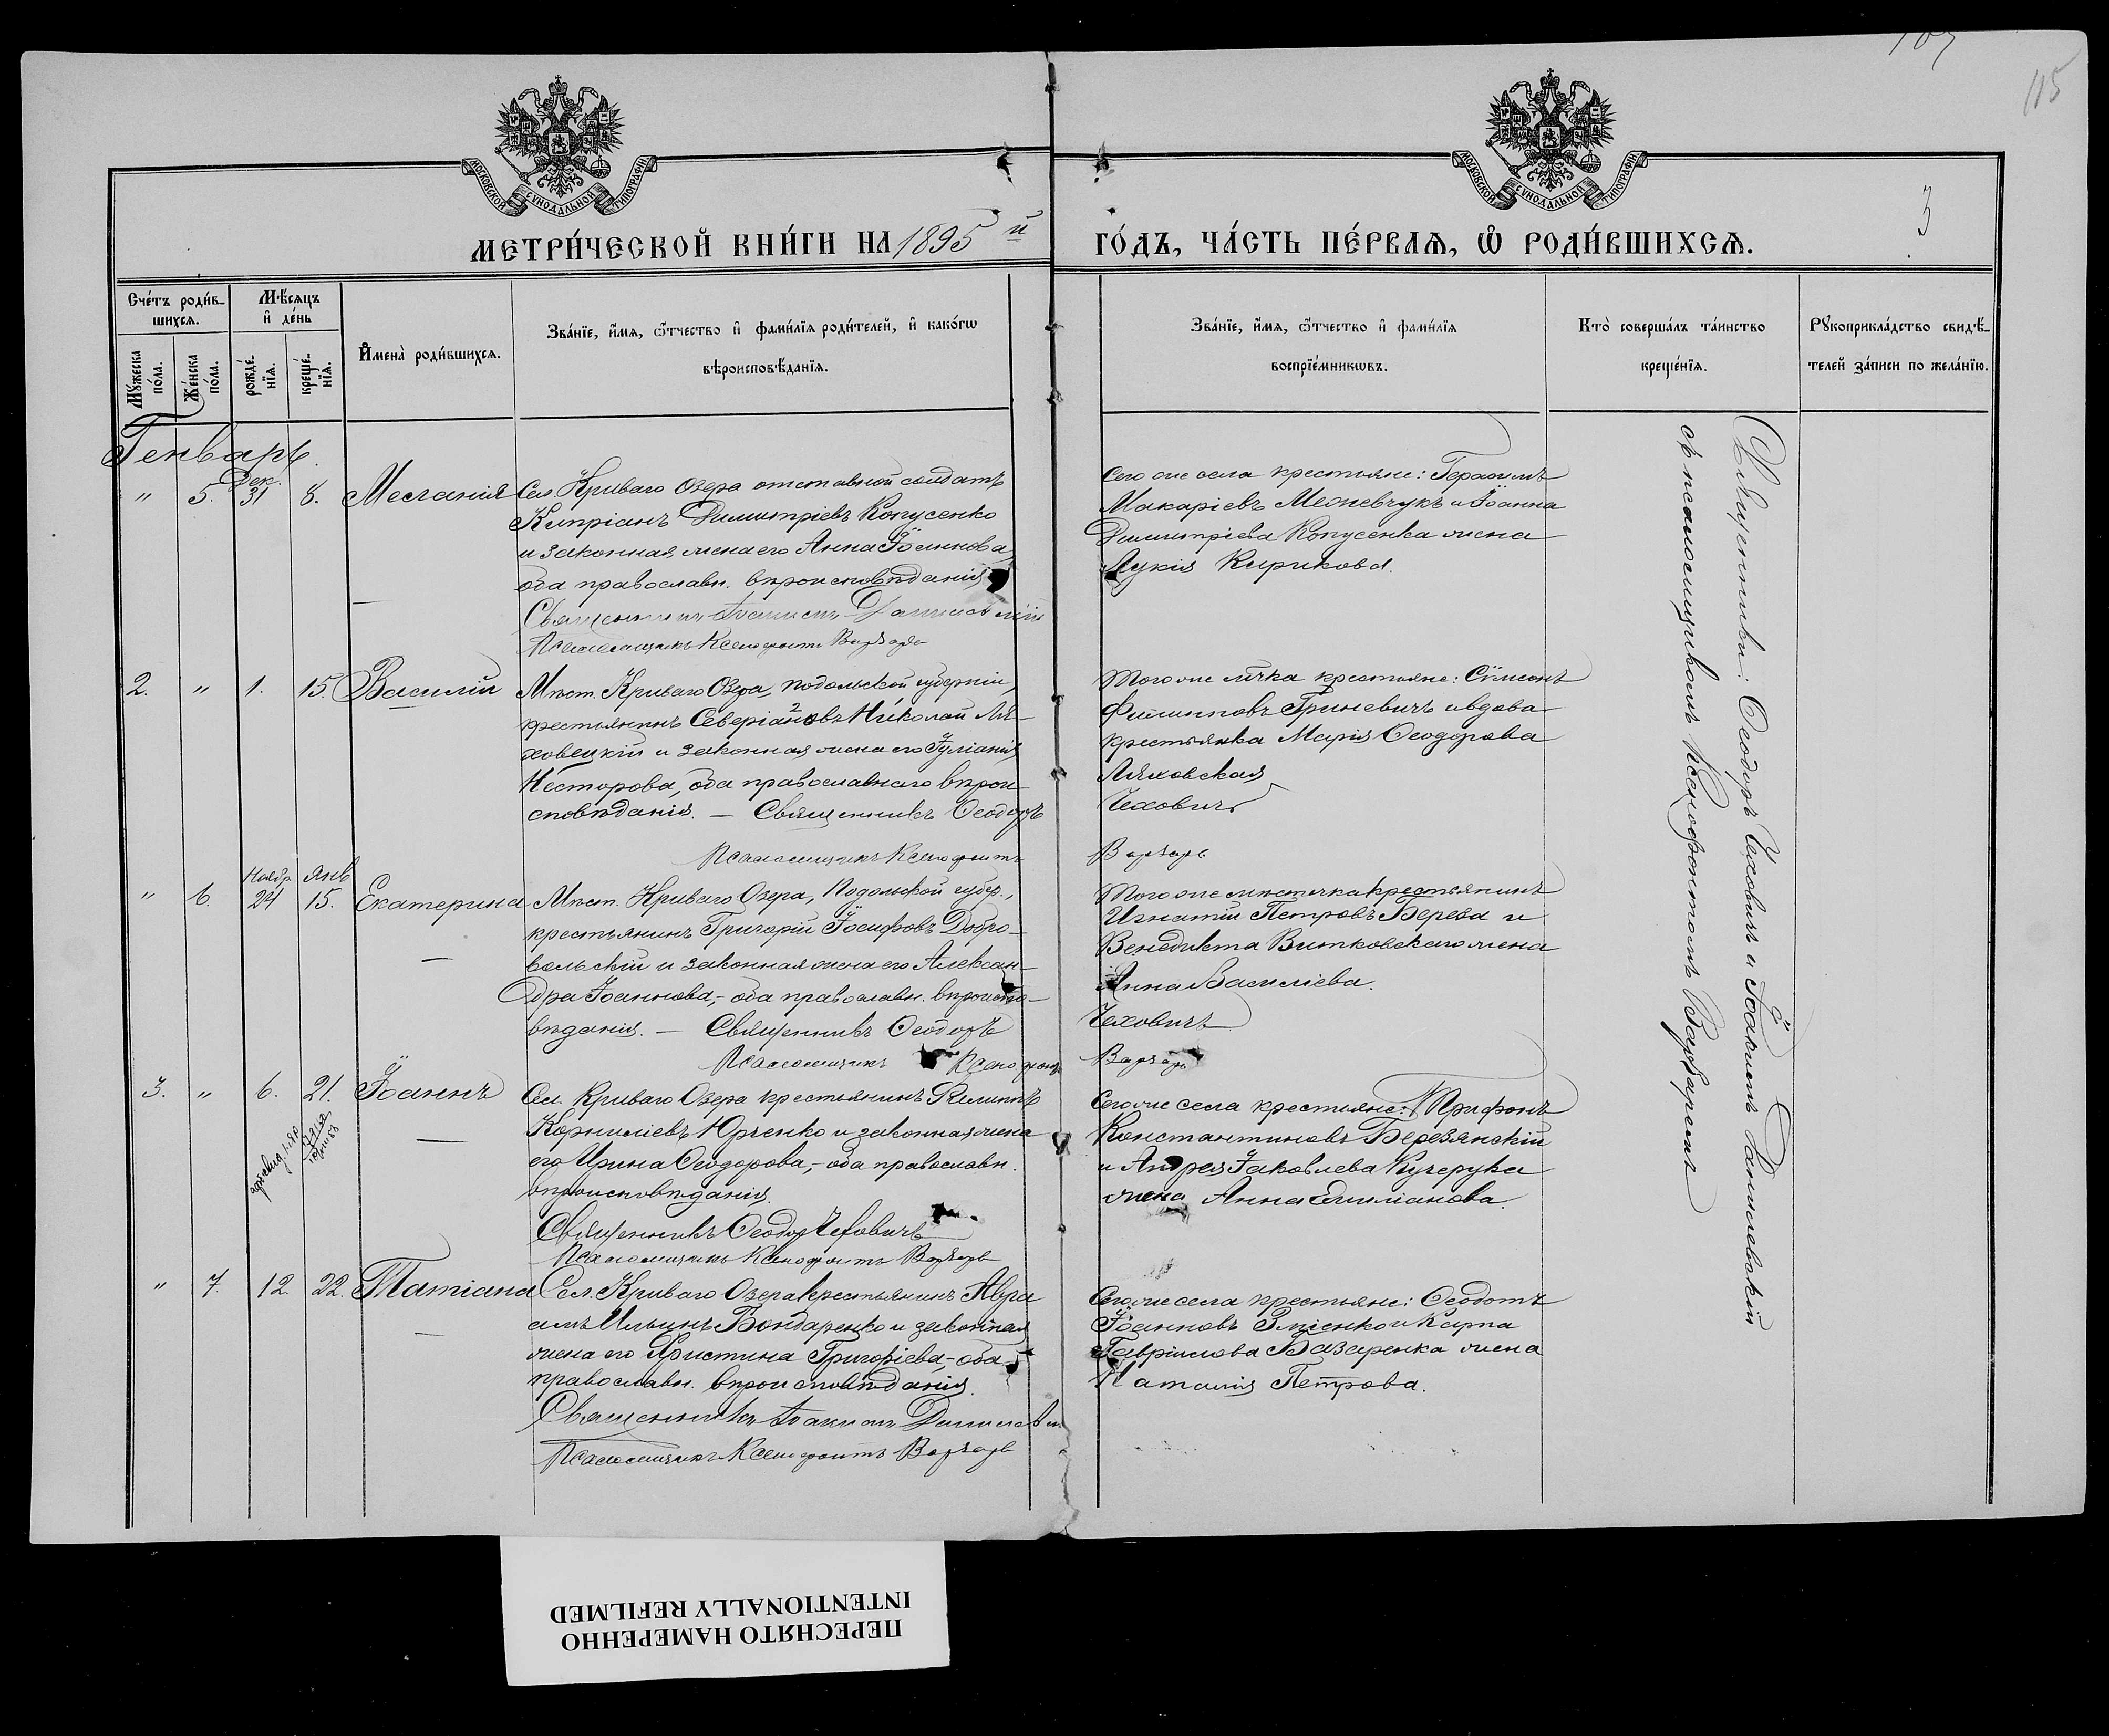 115
МОСКОВСКОЙ СУНОДАЛЬНОЙ ТИПОГРАФІИ
МОСКОВСКОЙ СУНОДАЛЬНОЙ ТИПОГРАФІИ
3
МЕТРИ́ЧЕСКОЙ КНИ́ГИ НА 1895 й
ГО́ДЪ, ЧА́СТЬ ПЕ́РВАѦ, Ѿ РОДИ́ВШИХСѦ.
Сче́тъ роди́в-
шихсѧ.
Мꙋ́жеска по́ла.
Же́нска по́ла.
Мѣ́сѧцъ
и҆ де́нь
рожде́-
нїѧ.
креще́-
нїѧ.
И҆мена̀ роди́вшихсѧ.
Зва́нїе, и҆́мѧ, ѻ҆́тчество и҆ фами́лїѧ роди́телей, и҆ како́гѡ
вѣроисповѣ́данїѧ.
Зва́нїе, и҆́мѧ, ѻ҆́тчество и҆ фами́лїѧ
воспрїе́мникѡвъ.
Кто̀ соверша́лъ та́инство
креще́нїѧ.
Рꙋкоприкла́дство свидѣ́-
телей за́писи по жела́нїю.
Генварь.
Дек.
" 5. 31 8. Меланія
Сел. Криваго Озера отставной солдатъ
Кипріанъ Димитріевъ Копусенко
и законная жена его Анна Іоаннова,
оба православн. вѣроисповѣданія
Священникъ Іоакимъ Данилевскій
Псаломщикъ Ксенофонтъ Варварь
Сего же села крестьяне: Герасимъ
Макаріевъ Межевчукъ и Іоанна
Димитріева Копусенка жена
Лукія Кирикова.
2. " 1. 15. Василій
Мѣст. Криваго Озера, Подольской губерніи,
крестьянинъ Северіановъ 2 Николай Ля-
ховецкій и законная жена его Іуліанія
Несторова, оба православнаго вѣрои-
сповѣданія. — Священникъ Ѳеодоръ
Псаломщикъ Ксенофонтъ
Того же м-чка крестьяне: Сѵмеонъ
Филипповъ Гриневичъ и вдова
крестьянка Марія Ѳеодорова
Ляховская
Чеховичъ
Варварь
Ноябр. Янв
" 6. 24 15. Екатерина
Мѣст. Криваго Озера, Подольской губер.,
крестьянинъ Григорій Іосифовъ Добро-
вольскій и законная жена его Алексан-
дра Іоаннова, - оба православн. вѣроиспо-
вѣданія. — Священникъ Ѳеодоръ
Псаломщикъ Ксенофонтъ
Того же мѣстечка крестьянинъ
Игнатій Петровъ Береза и
Венедикта Витковскаго жена
Анна Василіева.
Чеховичъ
Варварь
3. " 6. 21. Іоаннъ
Сел. Криваго Озера крестьянинъ Филиппъ
Корниліевъ Юрченко и законная жена
его Ирина Ѳеодорова, - оба православн.
вѣроисповѣданія.
Священникъ Ѳеодоръ Чеховичъ
Псаломщикъ Ксенофонтъ Варварь
Сего же села крестьяне: Трифонъ
Константиновъ Березянскій
и Андрея Іаковлева Кучерука
жена Анна
" 7. 12. 22. Татіана
Сел. Криваго Озера крестьянинъ Авра-
амъ Ильинъ Бондаренко и законная
жена его Христина Григоріева, - оба
православн. вѣроисповѣданія.
Священникъ Іоакимъ Данилевскій
Псаломщикъ Ксенофонтъ Варварь
Сего же села крестьяне: Ѳеодотъ
Іоанновъ Зміенко и Карпа
Гавріилова Базаренка жена
Наталія Петрова.
Священники: Ѳеодоръ Чеховичъ и Іоакимъ Данилевскій
съ псаломщикомъ Ксенофонтомъ Варваремъ
ПЕРЕСНЯТО НАМЕРЕННО
INTENTIONALLY REFILMED